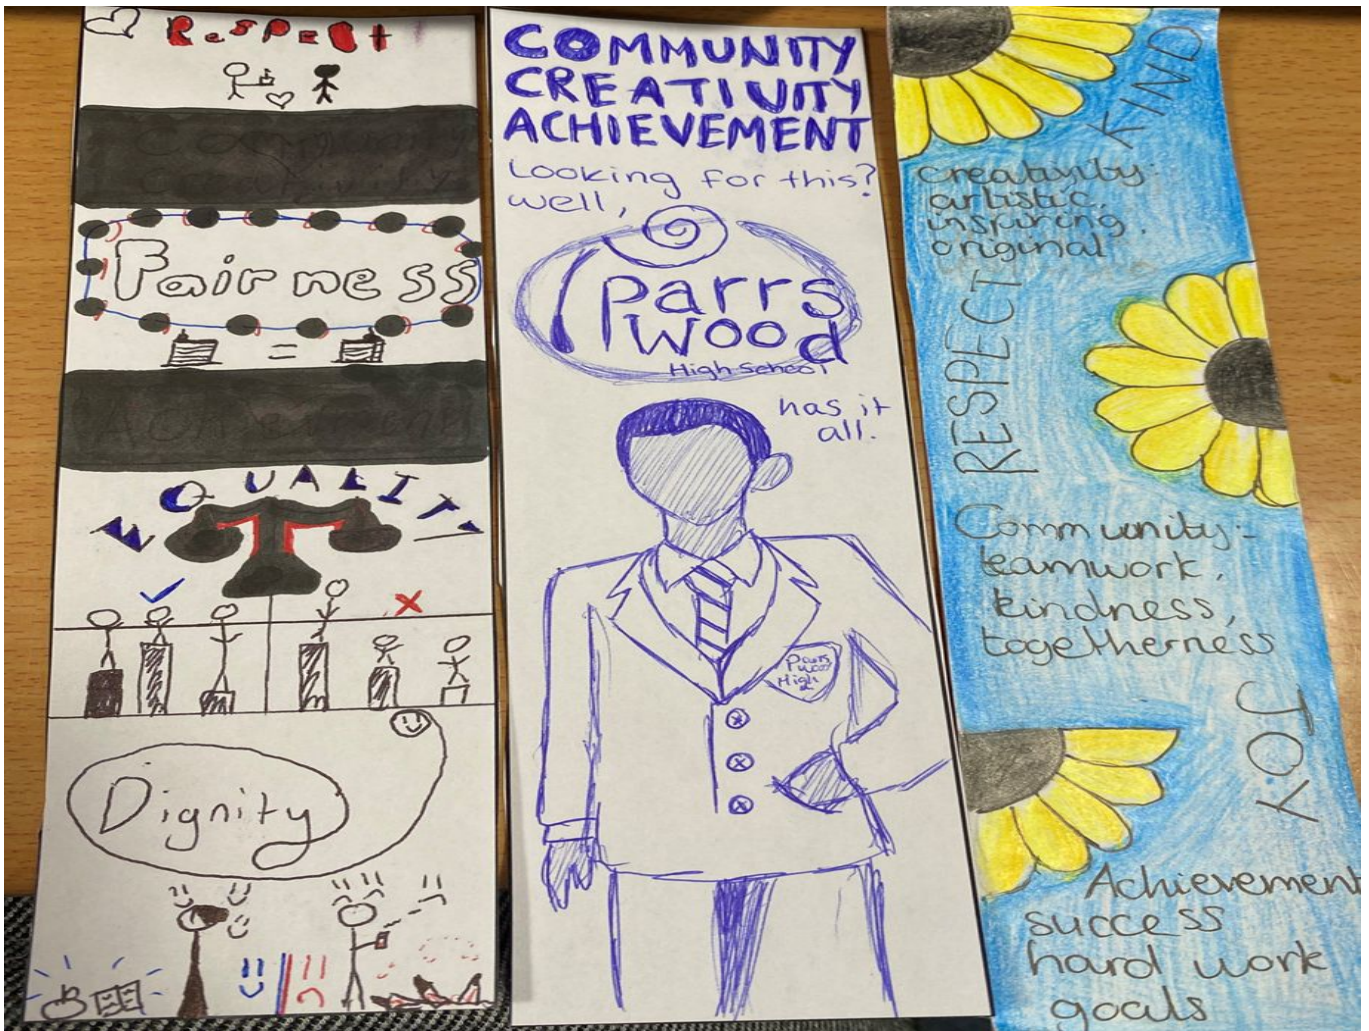 Respect
Community
Creativity
Fairness
=
Achievement
EQUALITY
Dignity
COMMUNITY
CREATIVITY
ACHIEVEMENT
Looking for this?
well,
Parrs
Wood
High School
has it
all.
Parrs
Wood
High
KIND
creativity:
artistic,
inspiring,
original
RESPECT
Community:
teamwork,
kindness,
togetherness
JOY
Achievement
success
hard work
goals